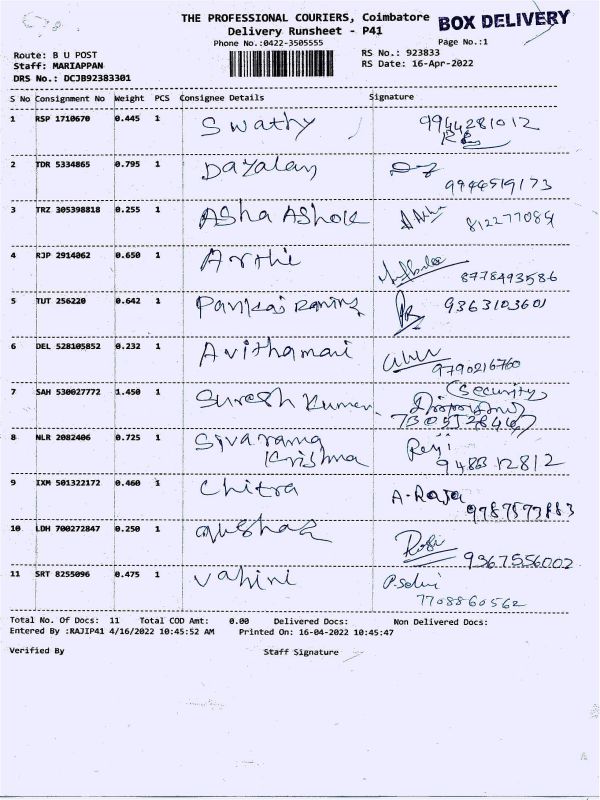 THE PROFESSIONAL COURIERS, Coimbatore
BOX DELIVERY
Delivery Runsheet - P41
Phone No.:0422-3505555
Page No.:1
Route: B U POST
RS No.: 923833
Staff: MARIAPPAN
RS Date: 16-Apr-2022
DRS No.: DCJB92383301
S No Consignment No Weight PCS Consignee Details Signature
1 RSP 1710670 0.445 1 Swathy 9944281012
2 TDR 5334865 0.795 1 Dayalan
9944519173
3 TRZ 305398818 0.255 1 Asha Ashok
812277084
4 RJP 2914062 0.650 1 Arthi
8778493586
5 TUT 256220 0.642 1 Pankaj 9363103601
6 DEL 528105852 0.232 1 Avithamani
9790216760
7 SAH 530027772 1.450 1 Suresh Kumar (Security)
8 NLR 2082406 0.725 1 Sivarama Reji
Krishna
9 IXM 501322172 0.460 1 Chitra A-Raja
10 LDH 700272847 0.250 1
9367556002
11 SRT 8255096 0.475 1 Vahini P.Selvi
7708860562
Total No. Of Docs: 11 Total COD Amt: 0.00 Delivered Docs: Non Delivered Docs:
Entered By :RAJIP41 4/16/2022 10:45:52 AM Printed On: 16-04-2022 10:45:47
Verified By Staff Signature